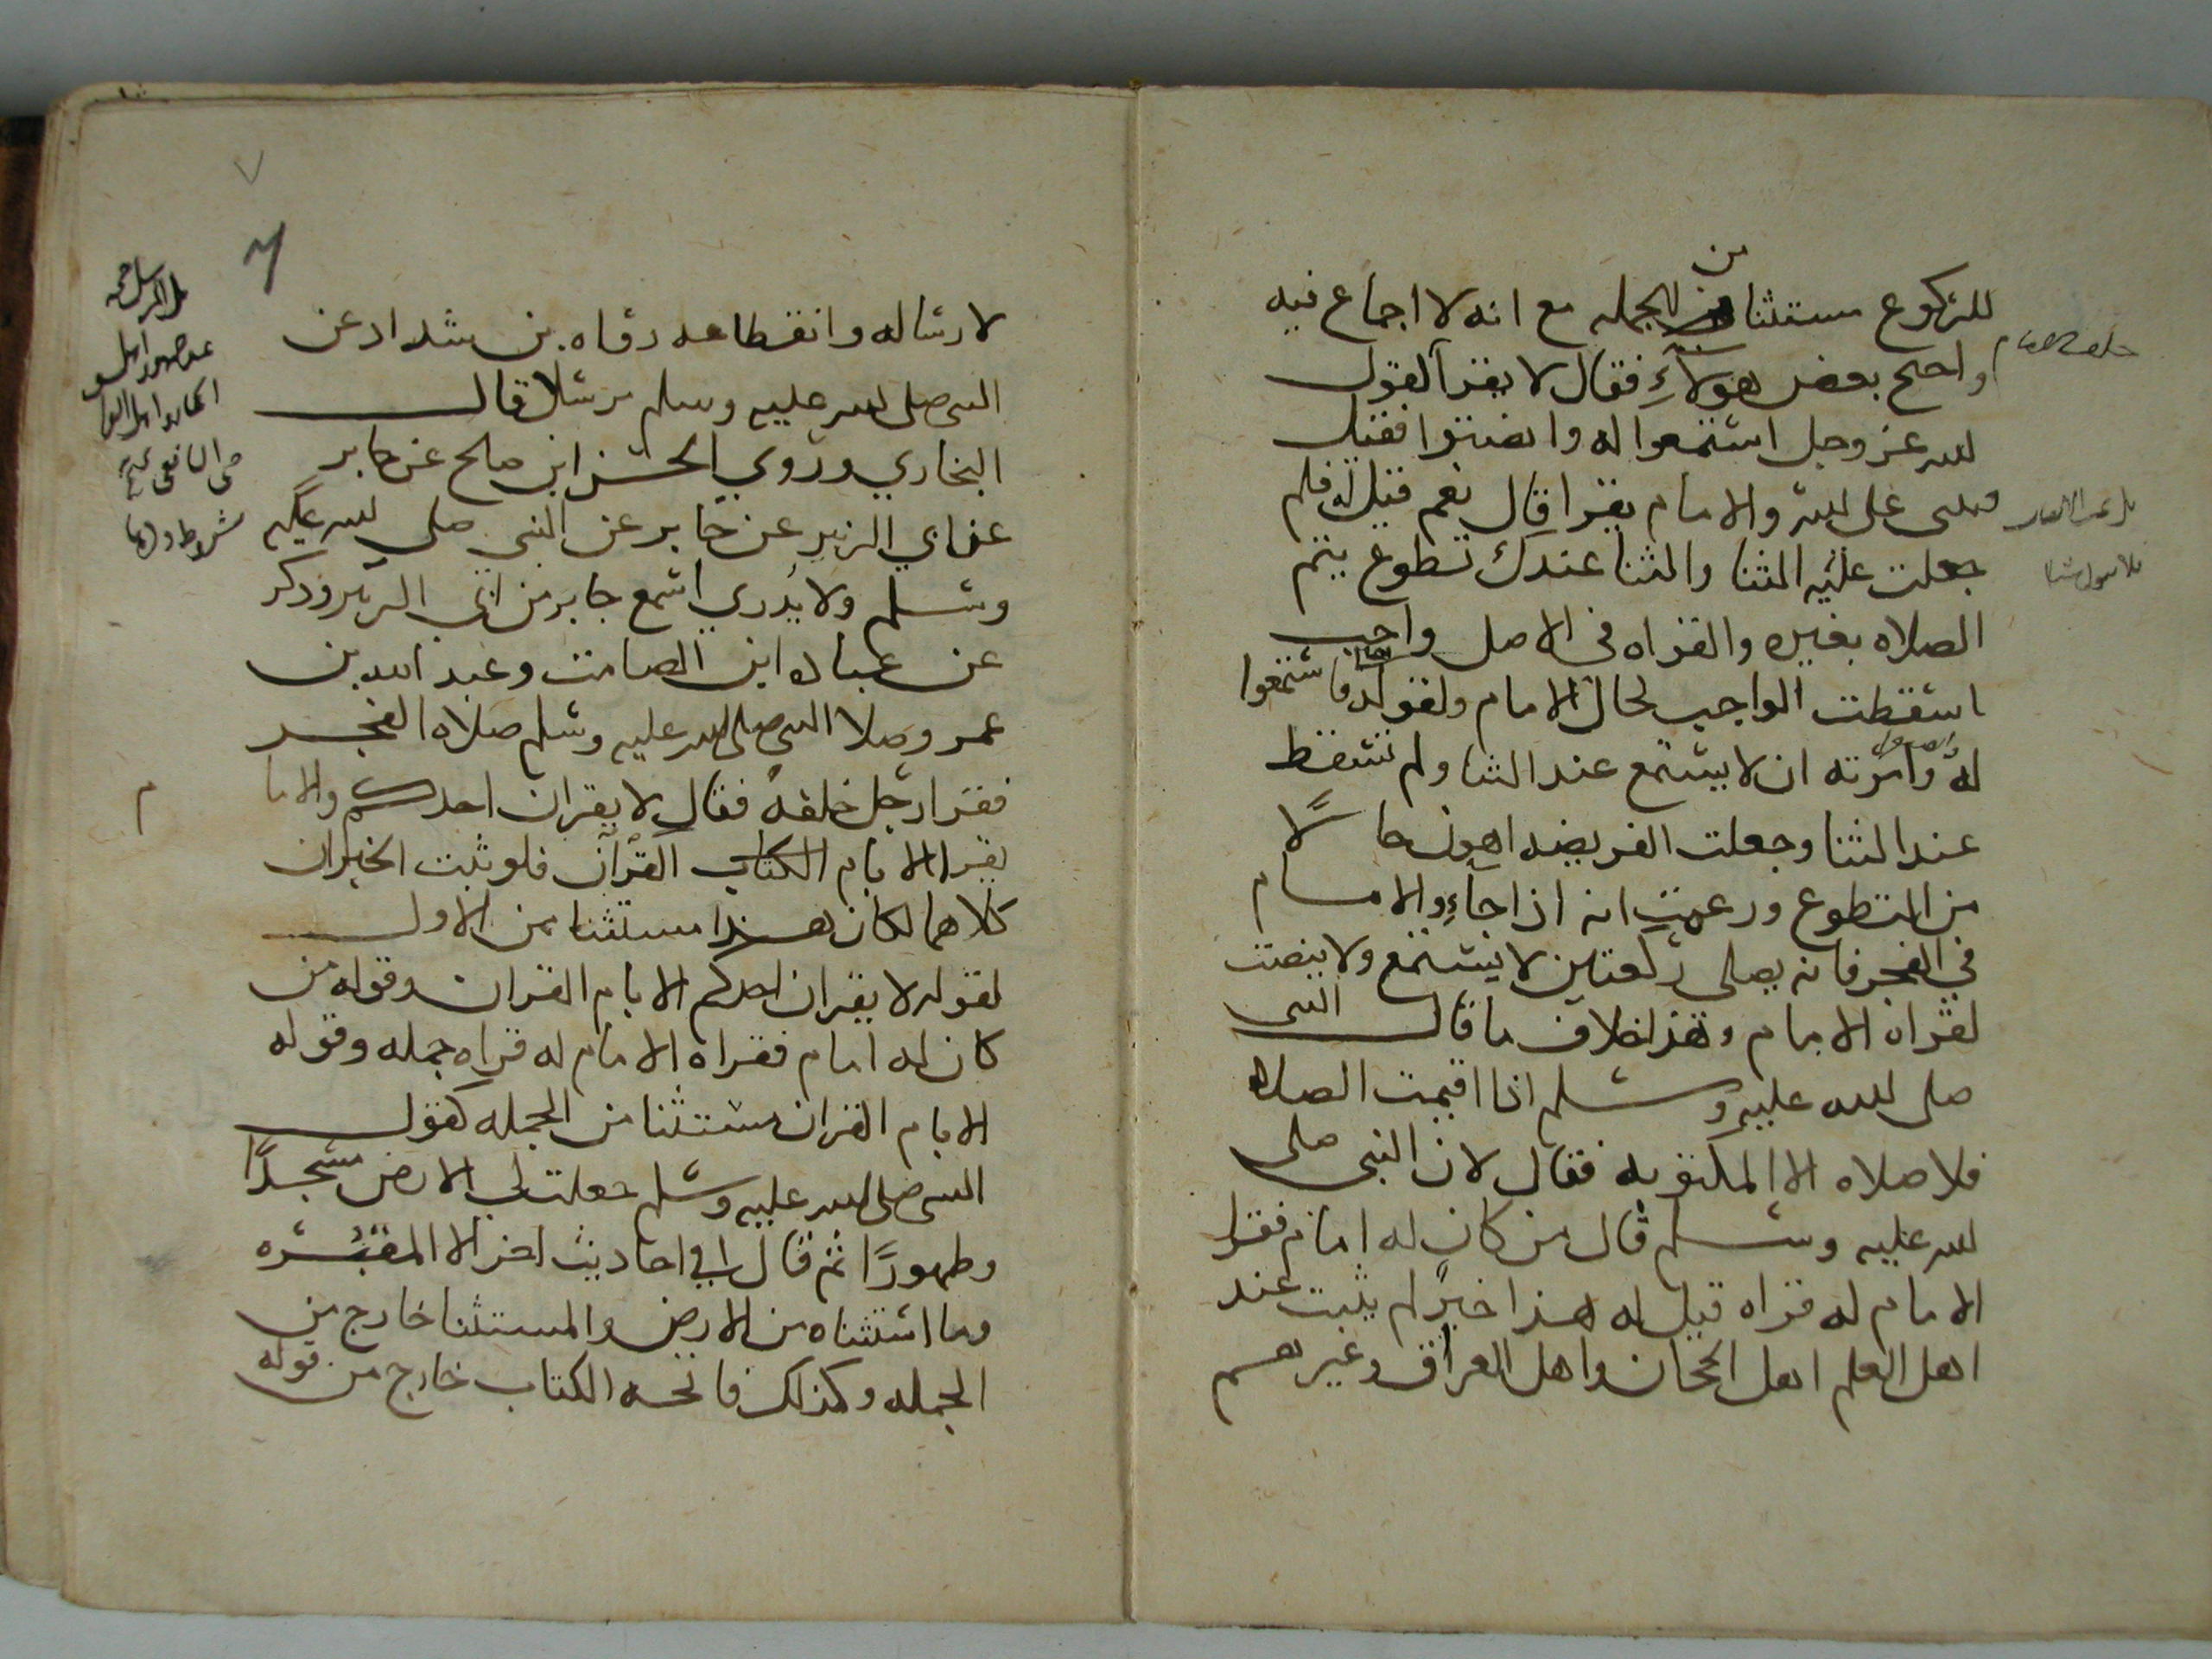 للركوع مستثنا من الجمله مع انه لا اجماع فيه
واحتج بعض هولآءِ فقال لا يقرا لقول
الله عز وجل استمعوا له وانصتوا فقيل
فيثنى على الله والامام يقرا قال نعم قيل له فلم
جعلت عليه الثنا والثنا عندك تطوع يتم
الصلاه بغيره والقراه في الاصل واجب
اسقطت الواجب لحال الامام ولقوله فاستمعوا
له وامرته ان لا يستمع عند الثنا ولم تسقط
عند الثنا وجعلت الفريضه اهون حالًا
من التطوع وزعمت انه اذا جاءِ والامام
في الفجر فانه يصلي ركعتين لا يستمع ولا ينصت
لقراه الامام وهذا خلاف ما قال النبى
صلى الله عليه وسلم اذا اقيمت الصلاه
فلا صلاه الا المكتوبه فقال لان النبى صلى
الله عليه وسلم قال من كان له امام فقراه
الامام له قراه قيل له هذا خبر لم يثبت عند
اهل العلم اهل الحجاز واهل العراق وغيرهم
لارساله وانقطاعه رواه بن شداد عن
النبى صلى الله عليه وسلم مرسلا قال
البخاري وروي الحسن ابن صلح عن جابر
عن ابي الزبير عن جابر عن النبي صلي الله عليه
وسلم ولا يُدري اسمع جابر من ابي الزبير وذكر
عن عباده ابن الصامت وعبد الله بن
عمرو صلا النبى صلى الله عليه وسلم صلاه الفجر
فقرا رجل خلفه فقال لا يقران احدكم والاما
يقرا الا بام الكتاب القرآن فلو ثبت الخبران
كلاهما لكان هذا مستثنا من الاول
لقوله لا يقران احدكم الا بام القران وقوله من
كان له امام فقراه الامام له قراه جمله وقوله
الا بام القران مستثنا من الجمله كقول
النبى صلى الله عليه وسلم جعلت لي الارض مسجدًا
وطهورًا ثم قال في احاديث اخر الا المقبُره
وما استثناه من الارض والمستثنا خارج من
الجمله وكذلك فاتحه الكتاب خارج من قوله